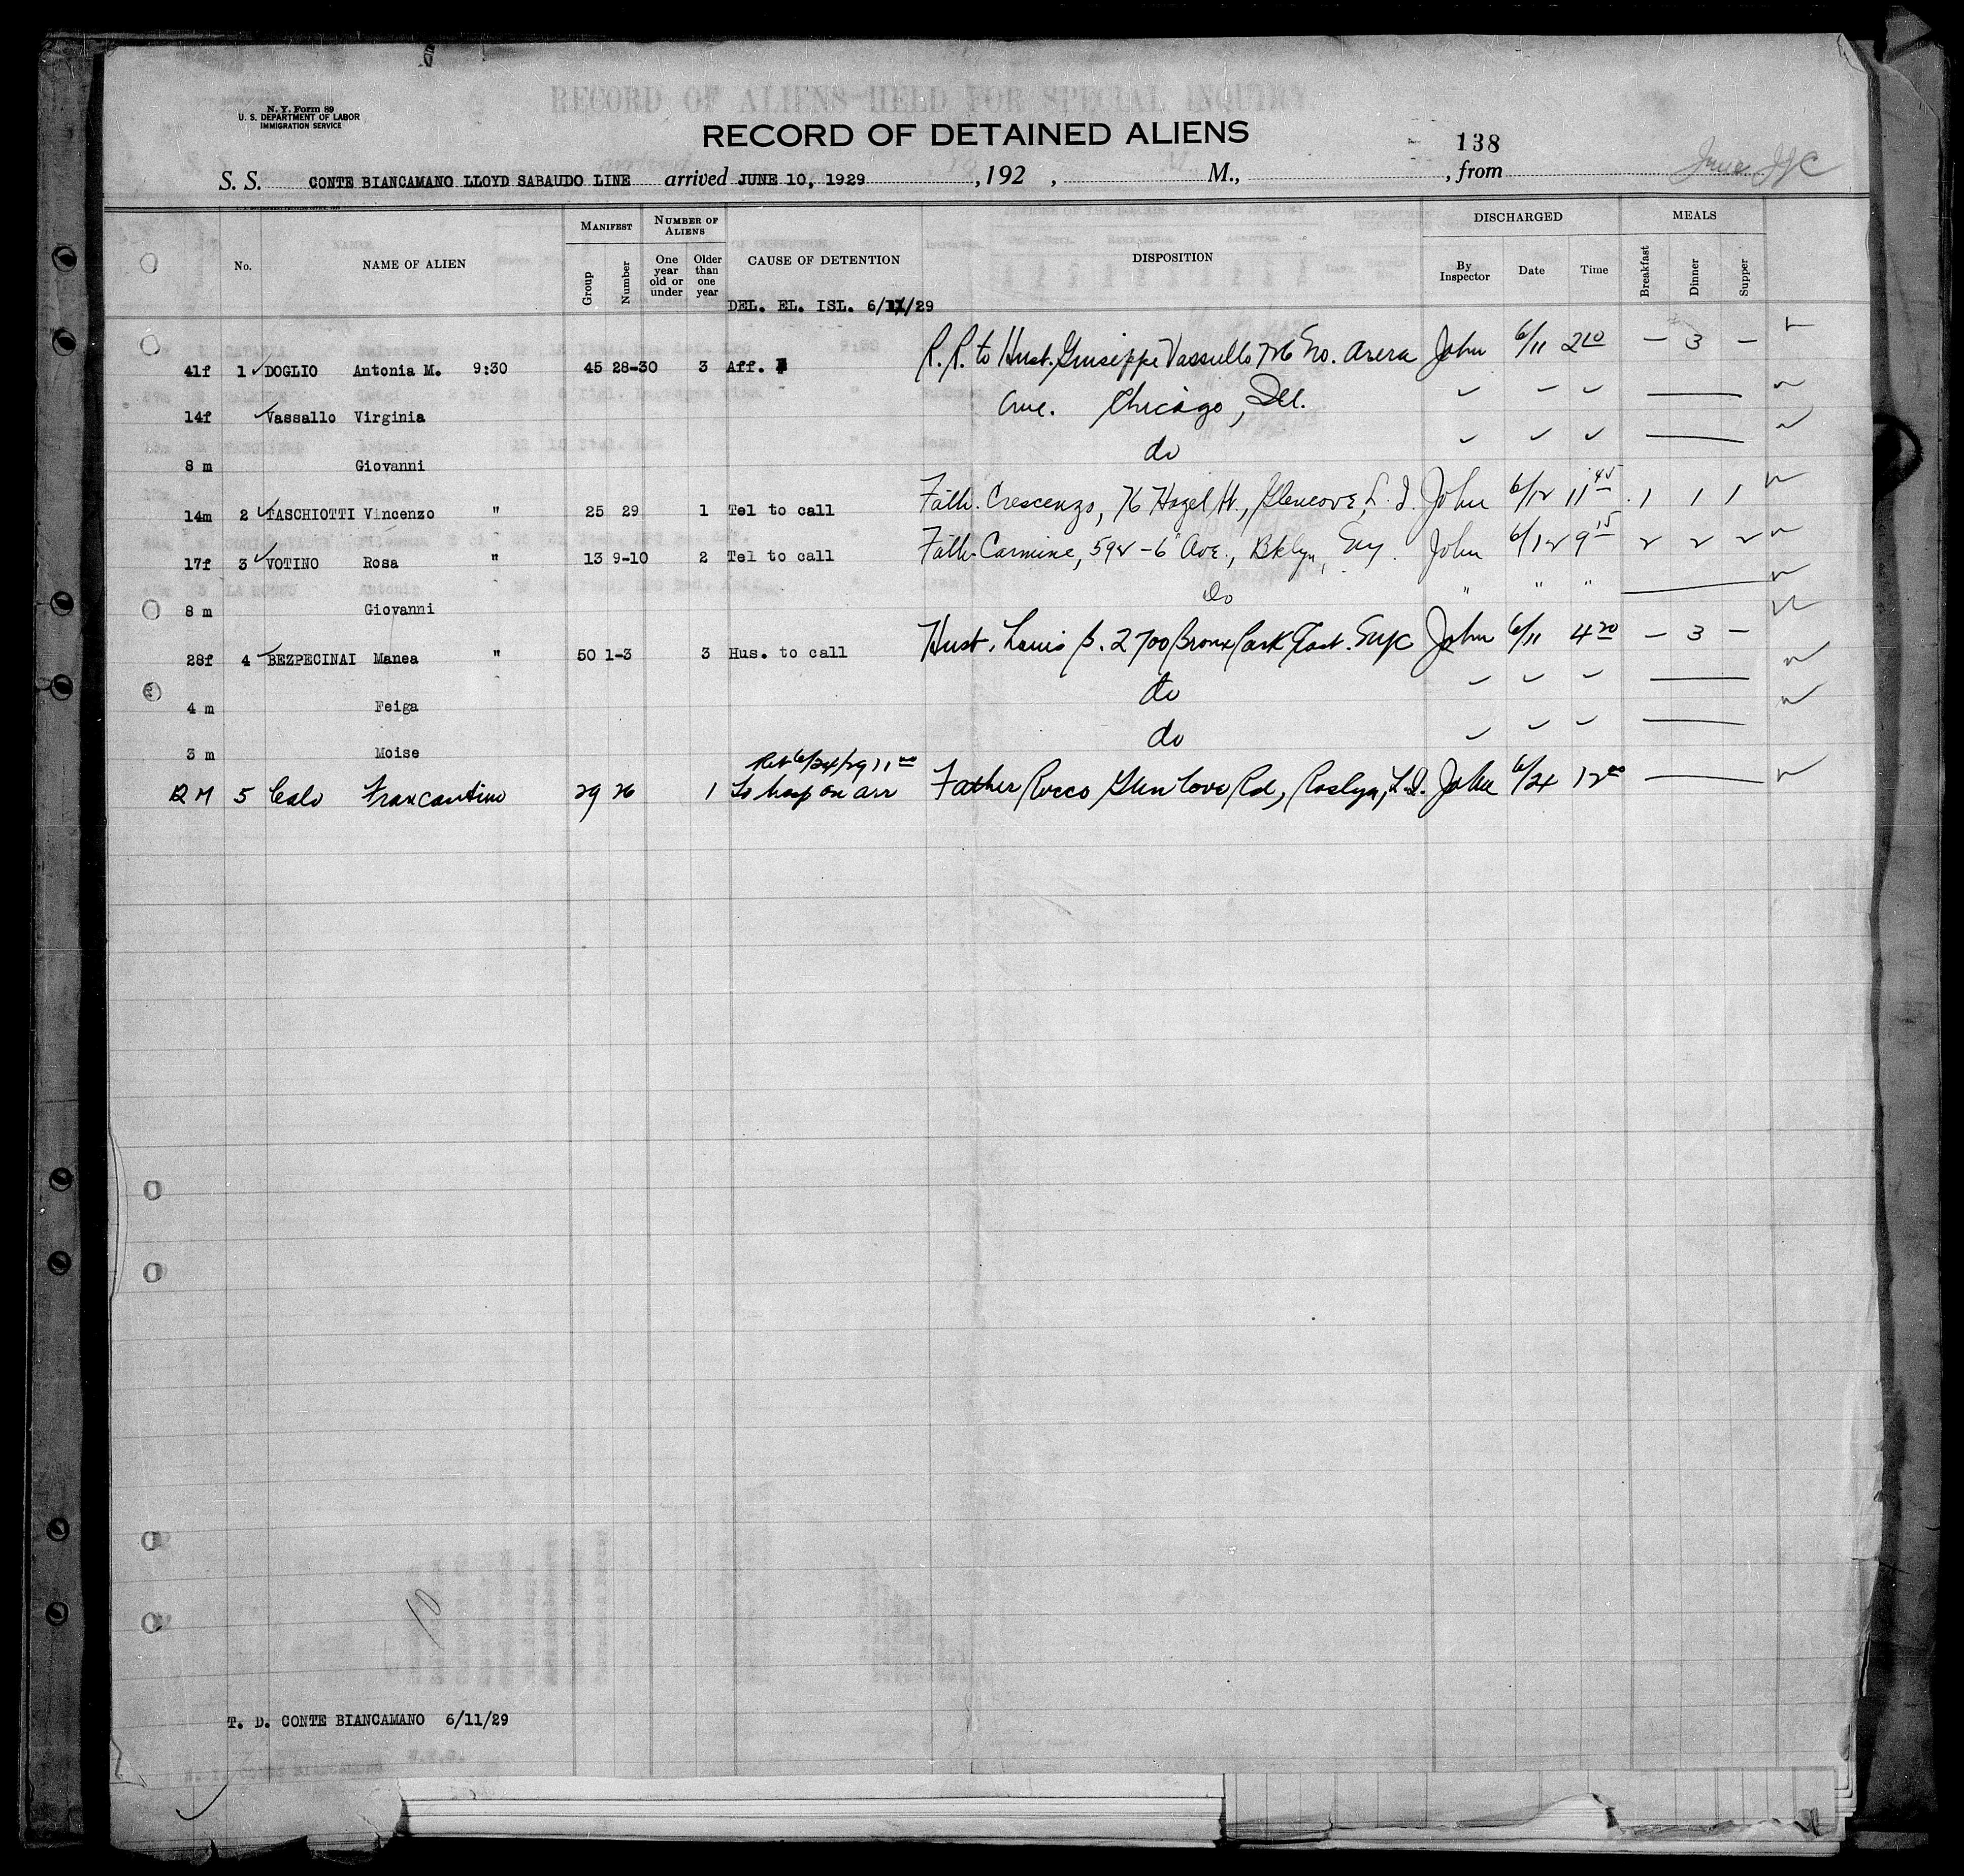 N. Y. Form 89
U. S. DEPARTMENT OF LABOR
IMMIGRATION SERVICE
RECORD OF ALIENS HELD FOR SPECIAL INQUIRY
RECORD OF DETAINED ALIENS
138
S. S. CONTE BIANCAMANO LLOYD SABAUDO LINE arrived JUNE 10, 1929 , 192 , M., , from
No. NAME OF ALIEN MANIFEST Group Number NUMBER OF ALIENS One year old or under Older than one year CAUSE OF DETENTION DISPOSITION DISCHARGED By Inspector Date Time MEALS Breakfast Dinner Supper
DEL. EL. ISL. 6/11/29
41f 1 ✓ DOGLIO Antonia M. 9:30 45 28-30 3 Aff. R.R. to Husb. Giuseppe Vassullo No. John 6/11 2 10 – 3 –
14f ✓ Vassallo Virginia Ave. Chicago, Ill. ✓ – ✓
8 m Giovanni do ✓ ✓ ✓
14m 2 ✓ TASCHIOTTI Vincenzo " 25 29 1 Tel to call Fath. Crescenzo, 76 Hazel St., Glencove, L. I. John 6/12 11 45 1 1 1
17f 3 ✓ VOTINO Rosa " 13 9-10 2 Tel to call Fath. Carmine, 592 - 6 Ave., Bklyn, Ny. John 6/12 9 15 2 2 2
8 m Giovanni Do " " "
28f 4 ✓ BEZPECINAI Manea " 50 1-3 3 Hus. to call Husb. Louis B. 2700 Bronx Park East. NYC John 6/11 4 20 – 3 –
4 m Feiga do ✓ ✓ ✓
3 m Moise do ✓ ✓ ✓
Ret 6/24/29 11 00
12 M 5 Calo Francantino 29 26 1 To hosp on arr Father Rocco Glen Cove Rd, Roslyn, L.I. John 6/24 12 00
10
T. D. CONTE BIANCAMANO 6/11/29